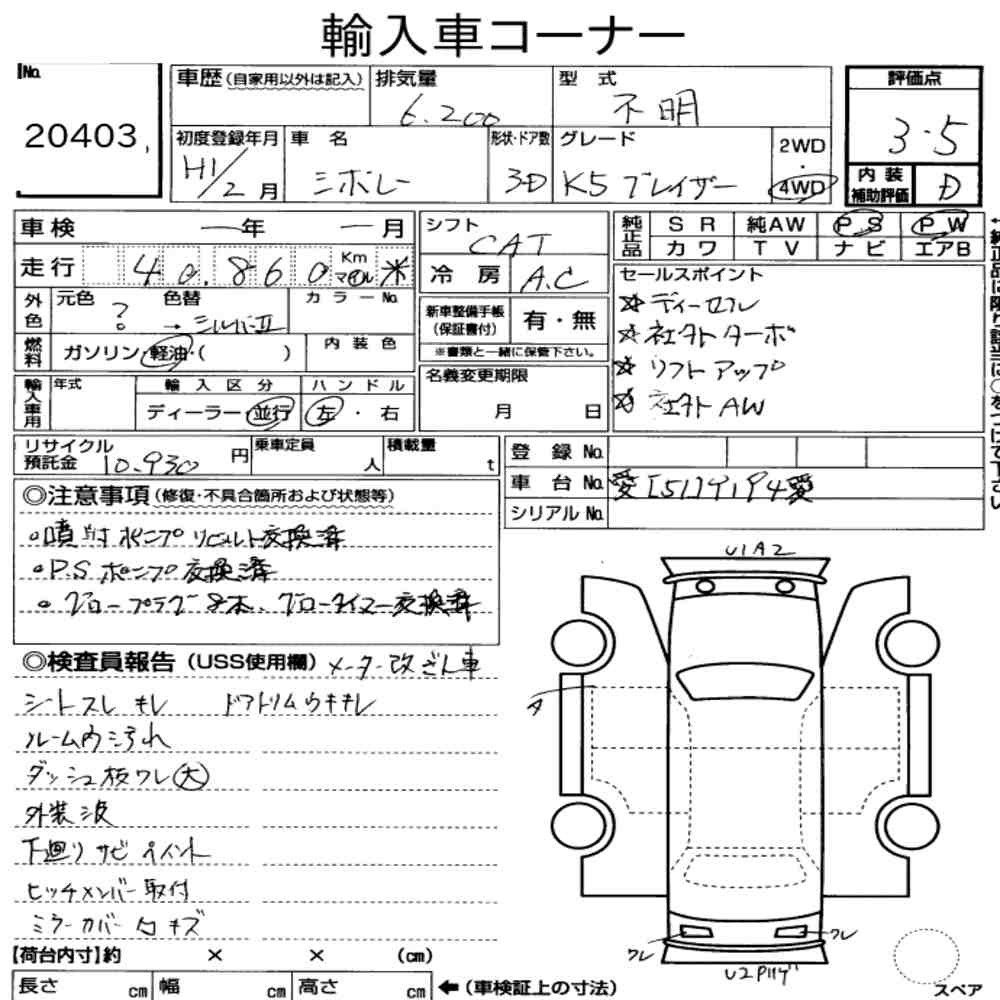 輸入車コーナー
No. 20403
車歴(自家用以外は記入) 排気量 6.200 型式 不明
評価点 3.5
初度登録年月 H1/2月 車名 シボレー 形状・ドア数 3D グレード K5 ブレイザー 2WD・4WD
内装補助評価 D
車検 ー年 ー月
走行 40.860 Km マイル ※
外色 元色 ? 色替 → シルバーII カラーNo.
燃料 ガソリン・軽油・( ) 内装色
輸入車用 年式 輸入区分 ディーラー・並行 ハンドル 左・右
シフト CAT
冷房 A.C
新車整備手帳(保証書付) 有・無
※書類と一緒に保管下さい。
名義変更期限 月 日
純正品 SR 純AW PS PW
カワ TV ナビ エアB
セールスポイント
☆ ディーゼル
☆ 社外ターボ
☆ リフトアップ
☆ 社外AW
リサイクル預託金 10.930円 乗車定員 人 積載量 t
登録No.
車台No. 愛[51]9194愛
シリアルNo.
◎注意事項(修復・不具合箇所および状態等)
・噴射ポンプリビルト交換済
・P.Sポンプ交換済
・グロープラグ8本、グロータイマー交換済
◎検査員報告(USS使用欄) メーター改ざん車
シートスレ キレ ドアトリムウキキレ
ルーム内汚れ
ダッシュ板ワレ(大)
外装波
下廻りサビ ペイント
ヒッチメンバー取付
ミラーカバー キズ
【荷台内寸】約 × × (cm)
長さ cm 幅 cm 高さ cm ←(車検証上の寸法)
U1A2
A
ワレ
ワレ
スペア